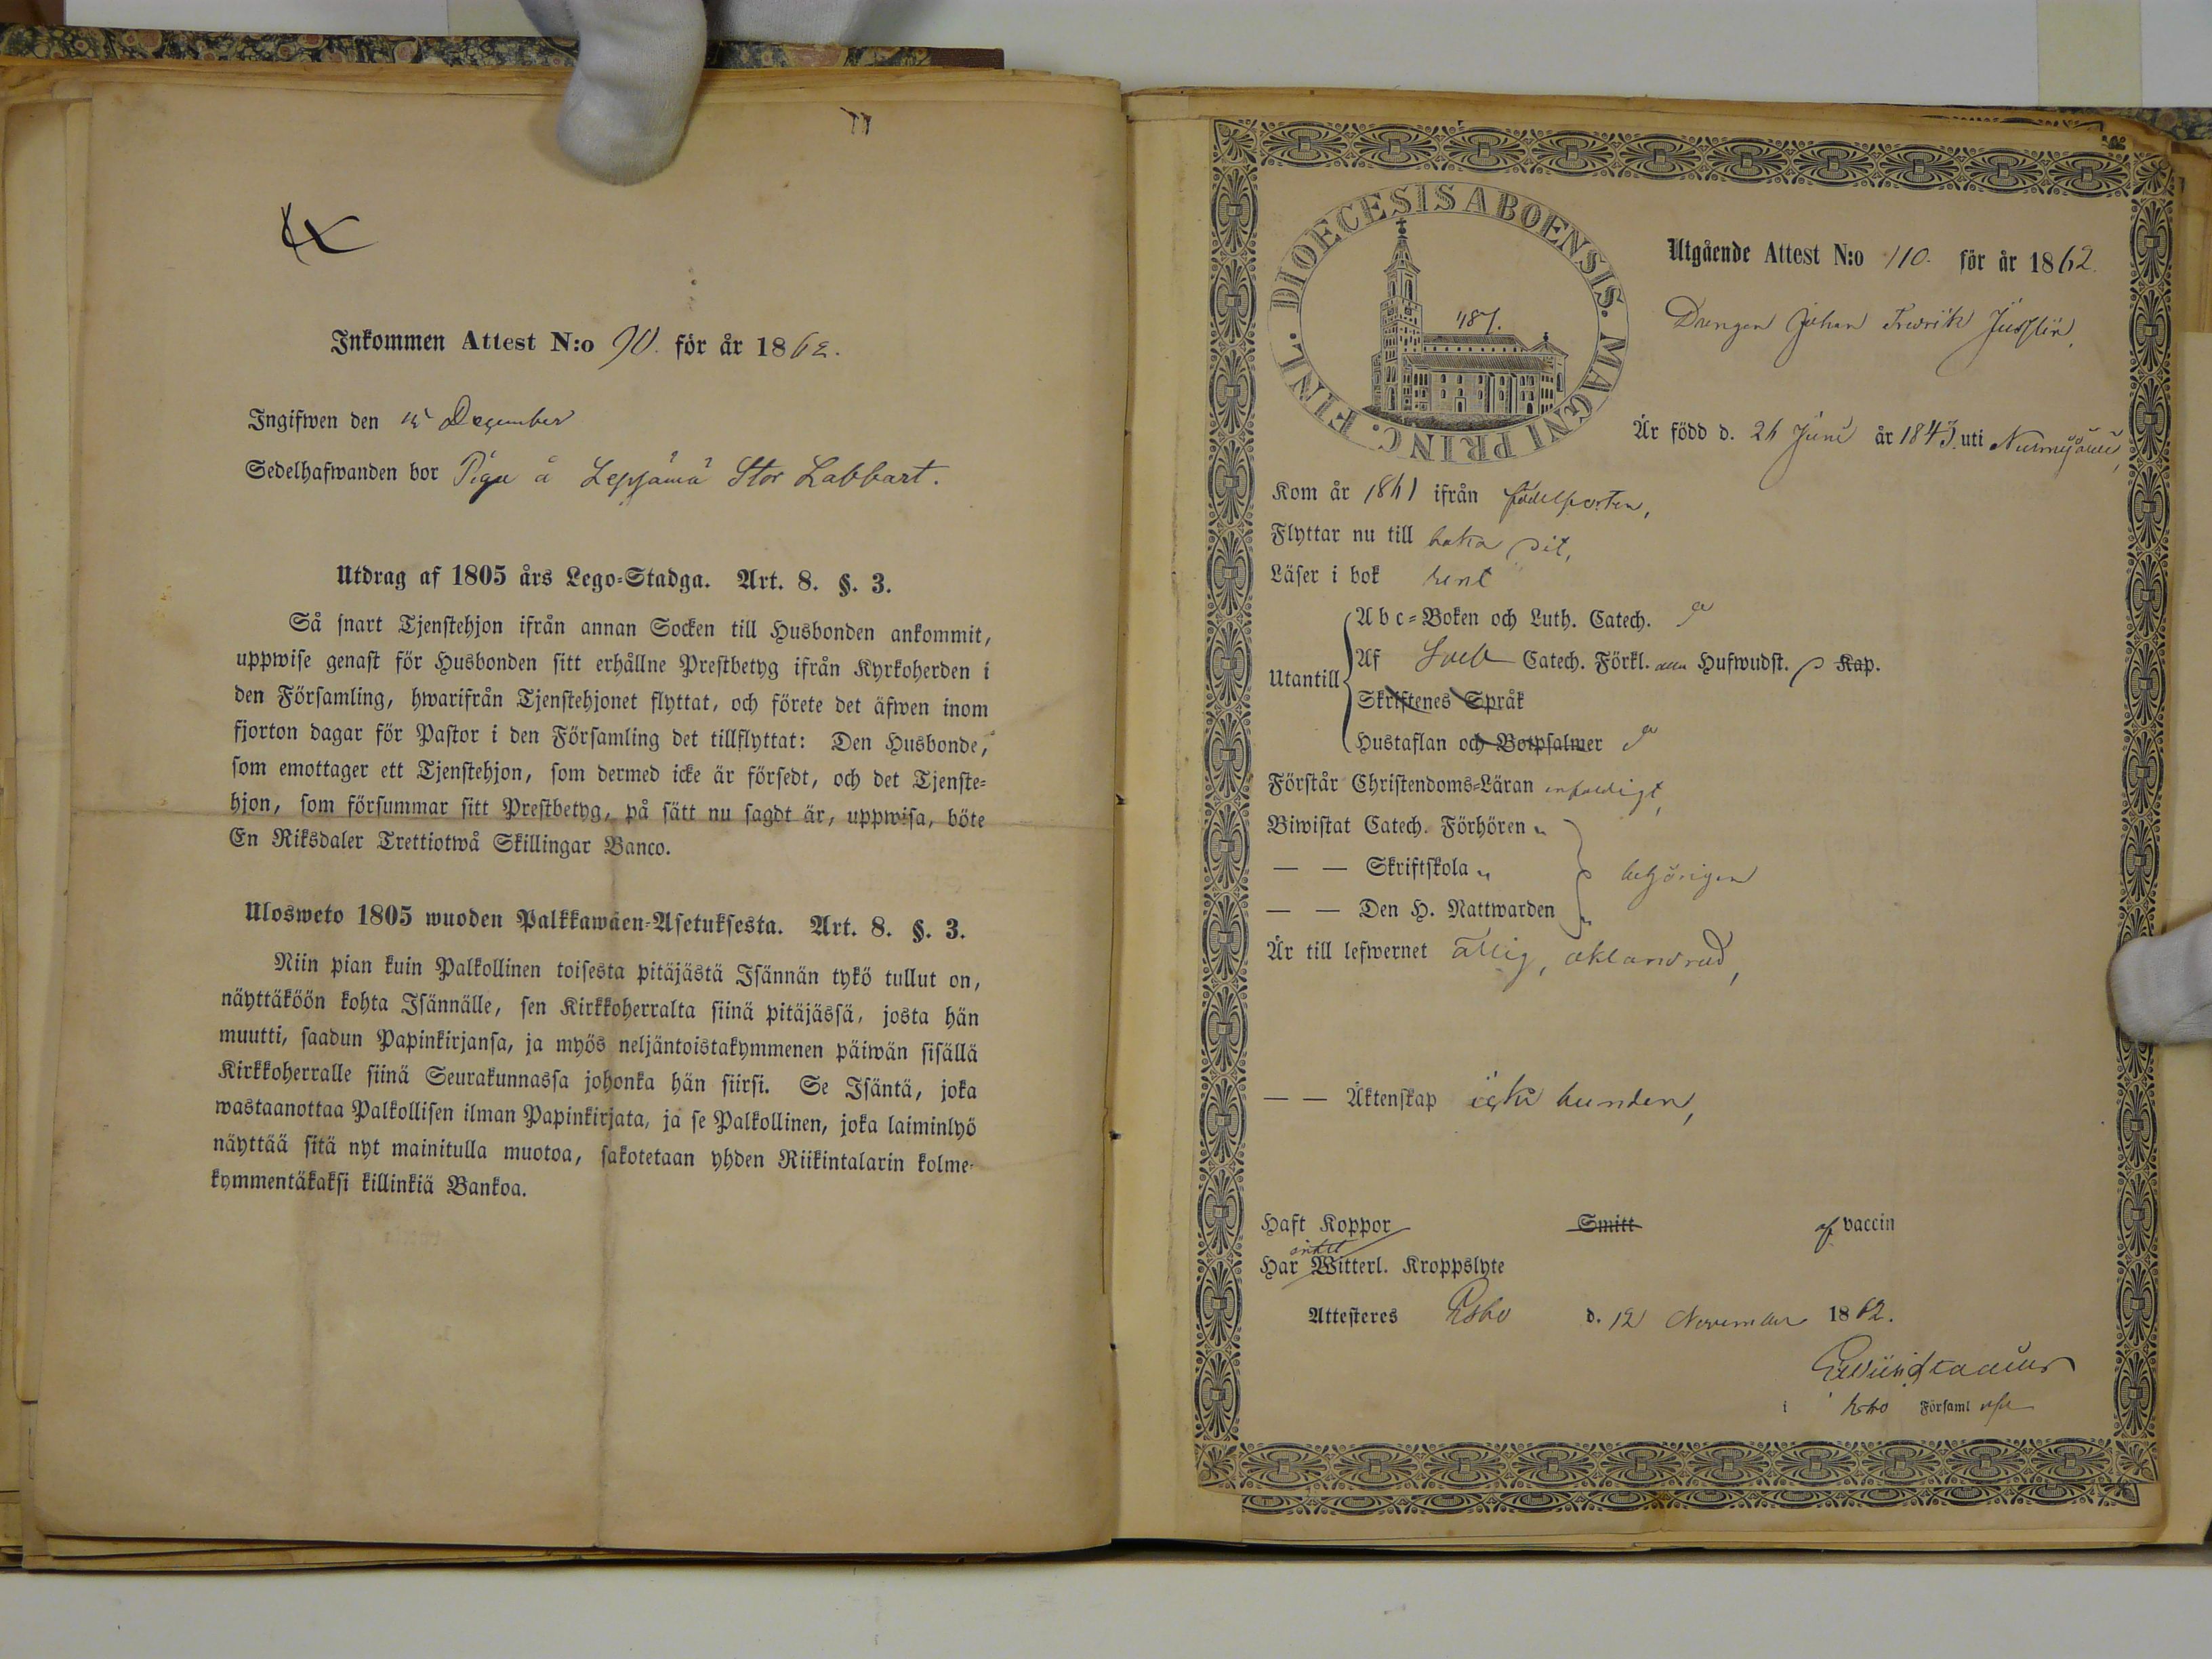 Inkommen Attest N:o 90. för år 1862.
Ingifwen den 15 December
Sedelhafwanden bor Piga å Leppämä Stor Labbart.
Utdrag af 1805 års Lego-Stadga. Art. 8. §. 3.
Så snart Tjenstehjon ifrån annan Socken till Husbonden ankommit,
uppwise genast för Husbonden sitt erhållne Prestbetyg ifrån Kyrkoherden i
den Församling, hwarifrån Tjenstehjonet flyttat, och förete det äfwen inom
fjorton dagar för Pastor i den Församling det tillflyttat: Den Husbonde,
som emottager ett Tjenstehjon, som dermed icke är försedt, och det Tjenste-
hjon, som försummar sitt Prestbetyg, på sätt nu sagdt är, uppwisa, böte
En Riksdaler Trettiotwå Skillingar Banco.
Ulosweto 1805 wuoden Palkkawäen-Asetuksesta. Art. 8. §. 3.
Niin pian kuin Palkollinen toisesta pitäjästä Isännän tykö tullut on,
näyttäköön kohta Isännälle, sen Kirkkoherralta siinä pitäjässä, josta hän
muutti, saadun Papinkirjansa, ja myös neljäntoistakymmenen päiwän sisällä
Kirkkoherralle siinä Seurakunnassa johonka hän siirsi. Se Isäntä, joka
wastaanottaa Palkollisen ilman Papinkirjata, ja se Palkollinen, joka laiminlyö
näyttää sitä nyt mainitulla muotoa, sakotetaan yhden Riikintalarin kolme-
kymmentäkaksi killinkiä Bankoa.
DIOECESIS ABOENSIS. MAGNI PRINC. FINL.
487.
Utgående Attest N:o 110. för år 1862.
Drengen Johan Fredrik
Är född d. 26 Juni år 1843. uti Nurmijärvi,
Kom år 1861 ifrån födelseorten,
Flyttar nu till baka dit,
Läser i bok rent
Utantill
A b c-Boken och Luth. Catech. ja
Af Sveb Catech. Förkl. Hufwudst. Kap.
Skriftenes Språk
Hustaflan och Botpsalmer ja
Förstår Christendoms-Läran enfaldigt,
Biwistat Catech. Förhören
— — Skriftskola
behörigen
— — Den H. Nattwarden
Är till lefwernet ärlig, oklandrad,
— — Äktenskap icke bunden,
Haft Koppor Smitt af vaccin
intet
Har Witterl. Kroppslyte
Attesteres Esbo d. 12 November 1862.
i Esbo Församl